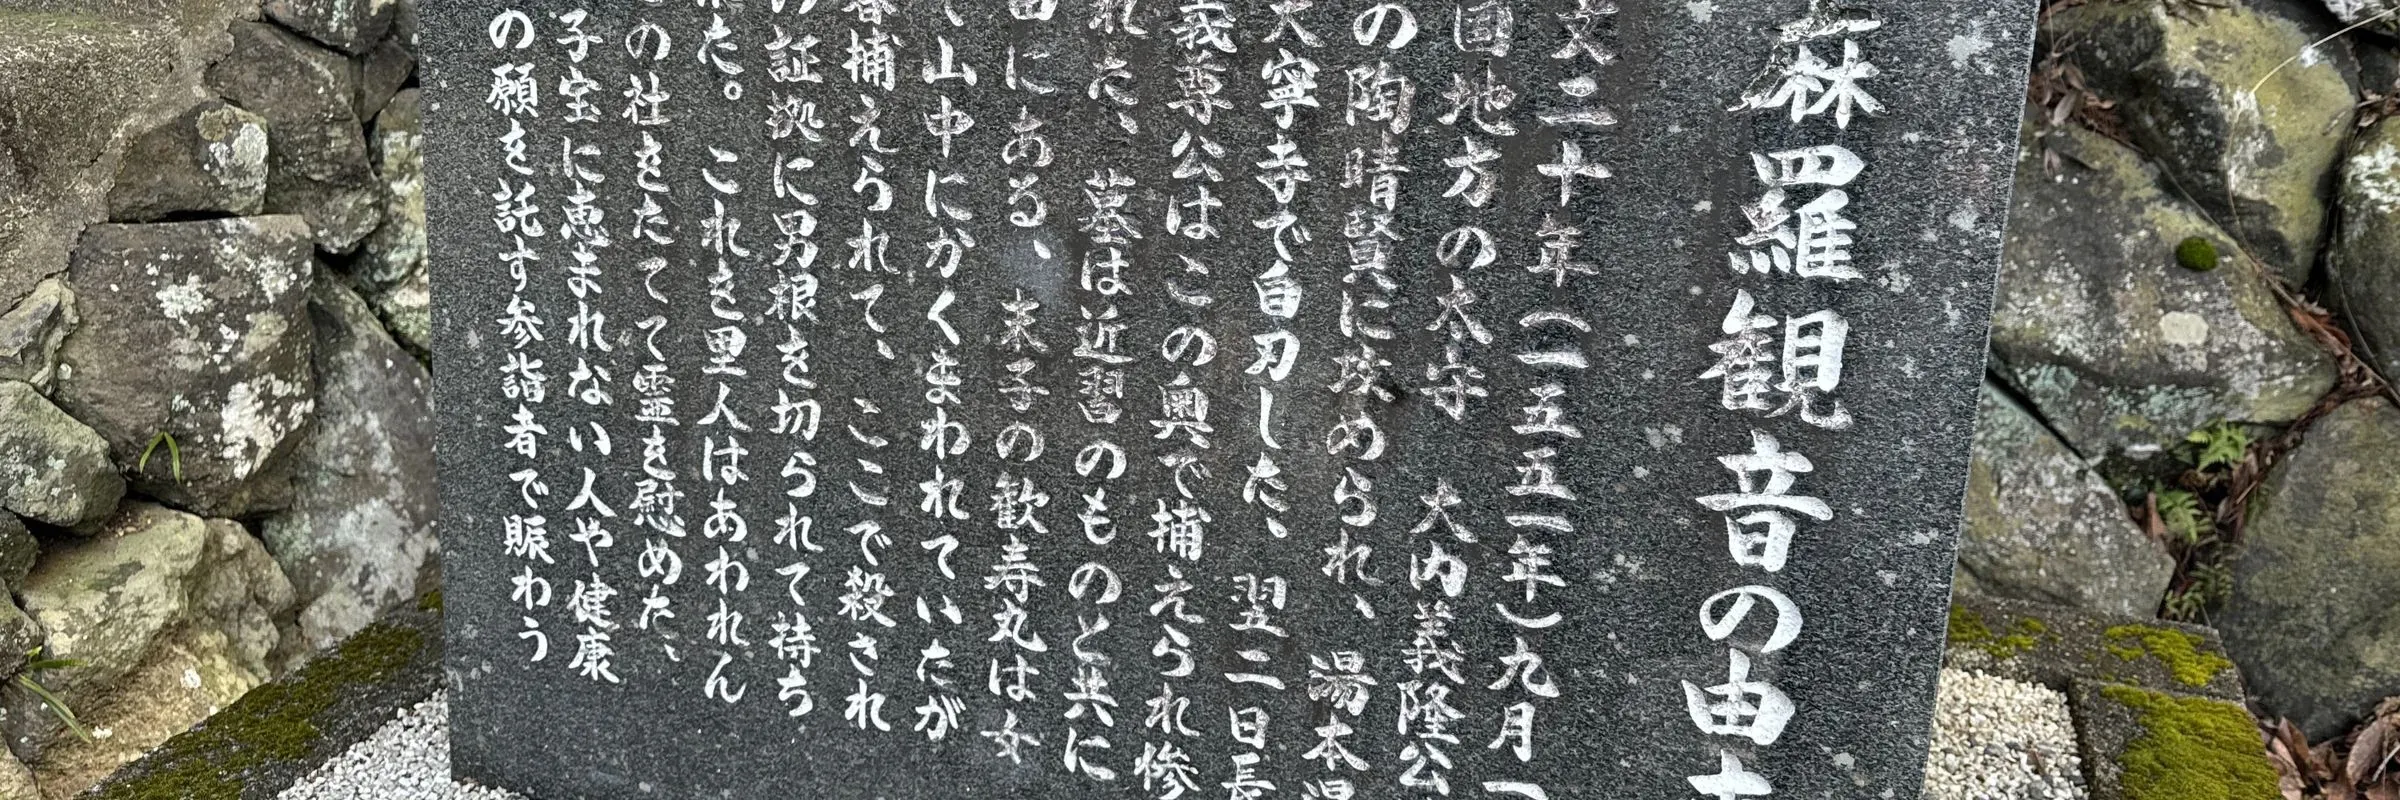 麻羅観音の由
文二十年（一五五一年）九月一
国地方の太守　大内義隆公
の陶晴賢に攻められ、湯本温
大寧寺で自刃した、翌二日長
義尊公はこの奥で捕えられ惨
れた、墓は近習のものと共に
にある、末子の歓寿丸は女
て山中にかくまわれていたが
春捕えられて、ここで殺され
の証拠に男根を切られて持ち
た。これを里人はあわれん
の社をたてて霊を慰めた、
子宝に恵まれない人や健康
の願を託す参詣者で賑わう